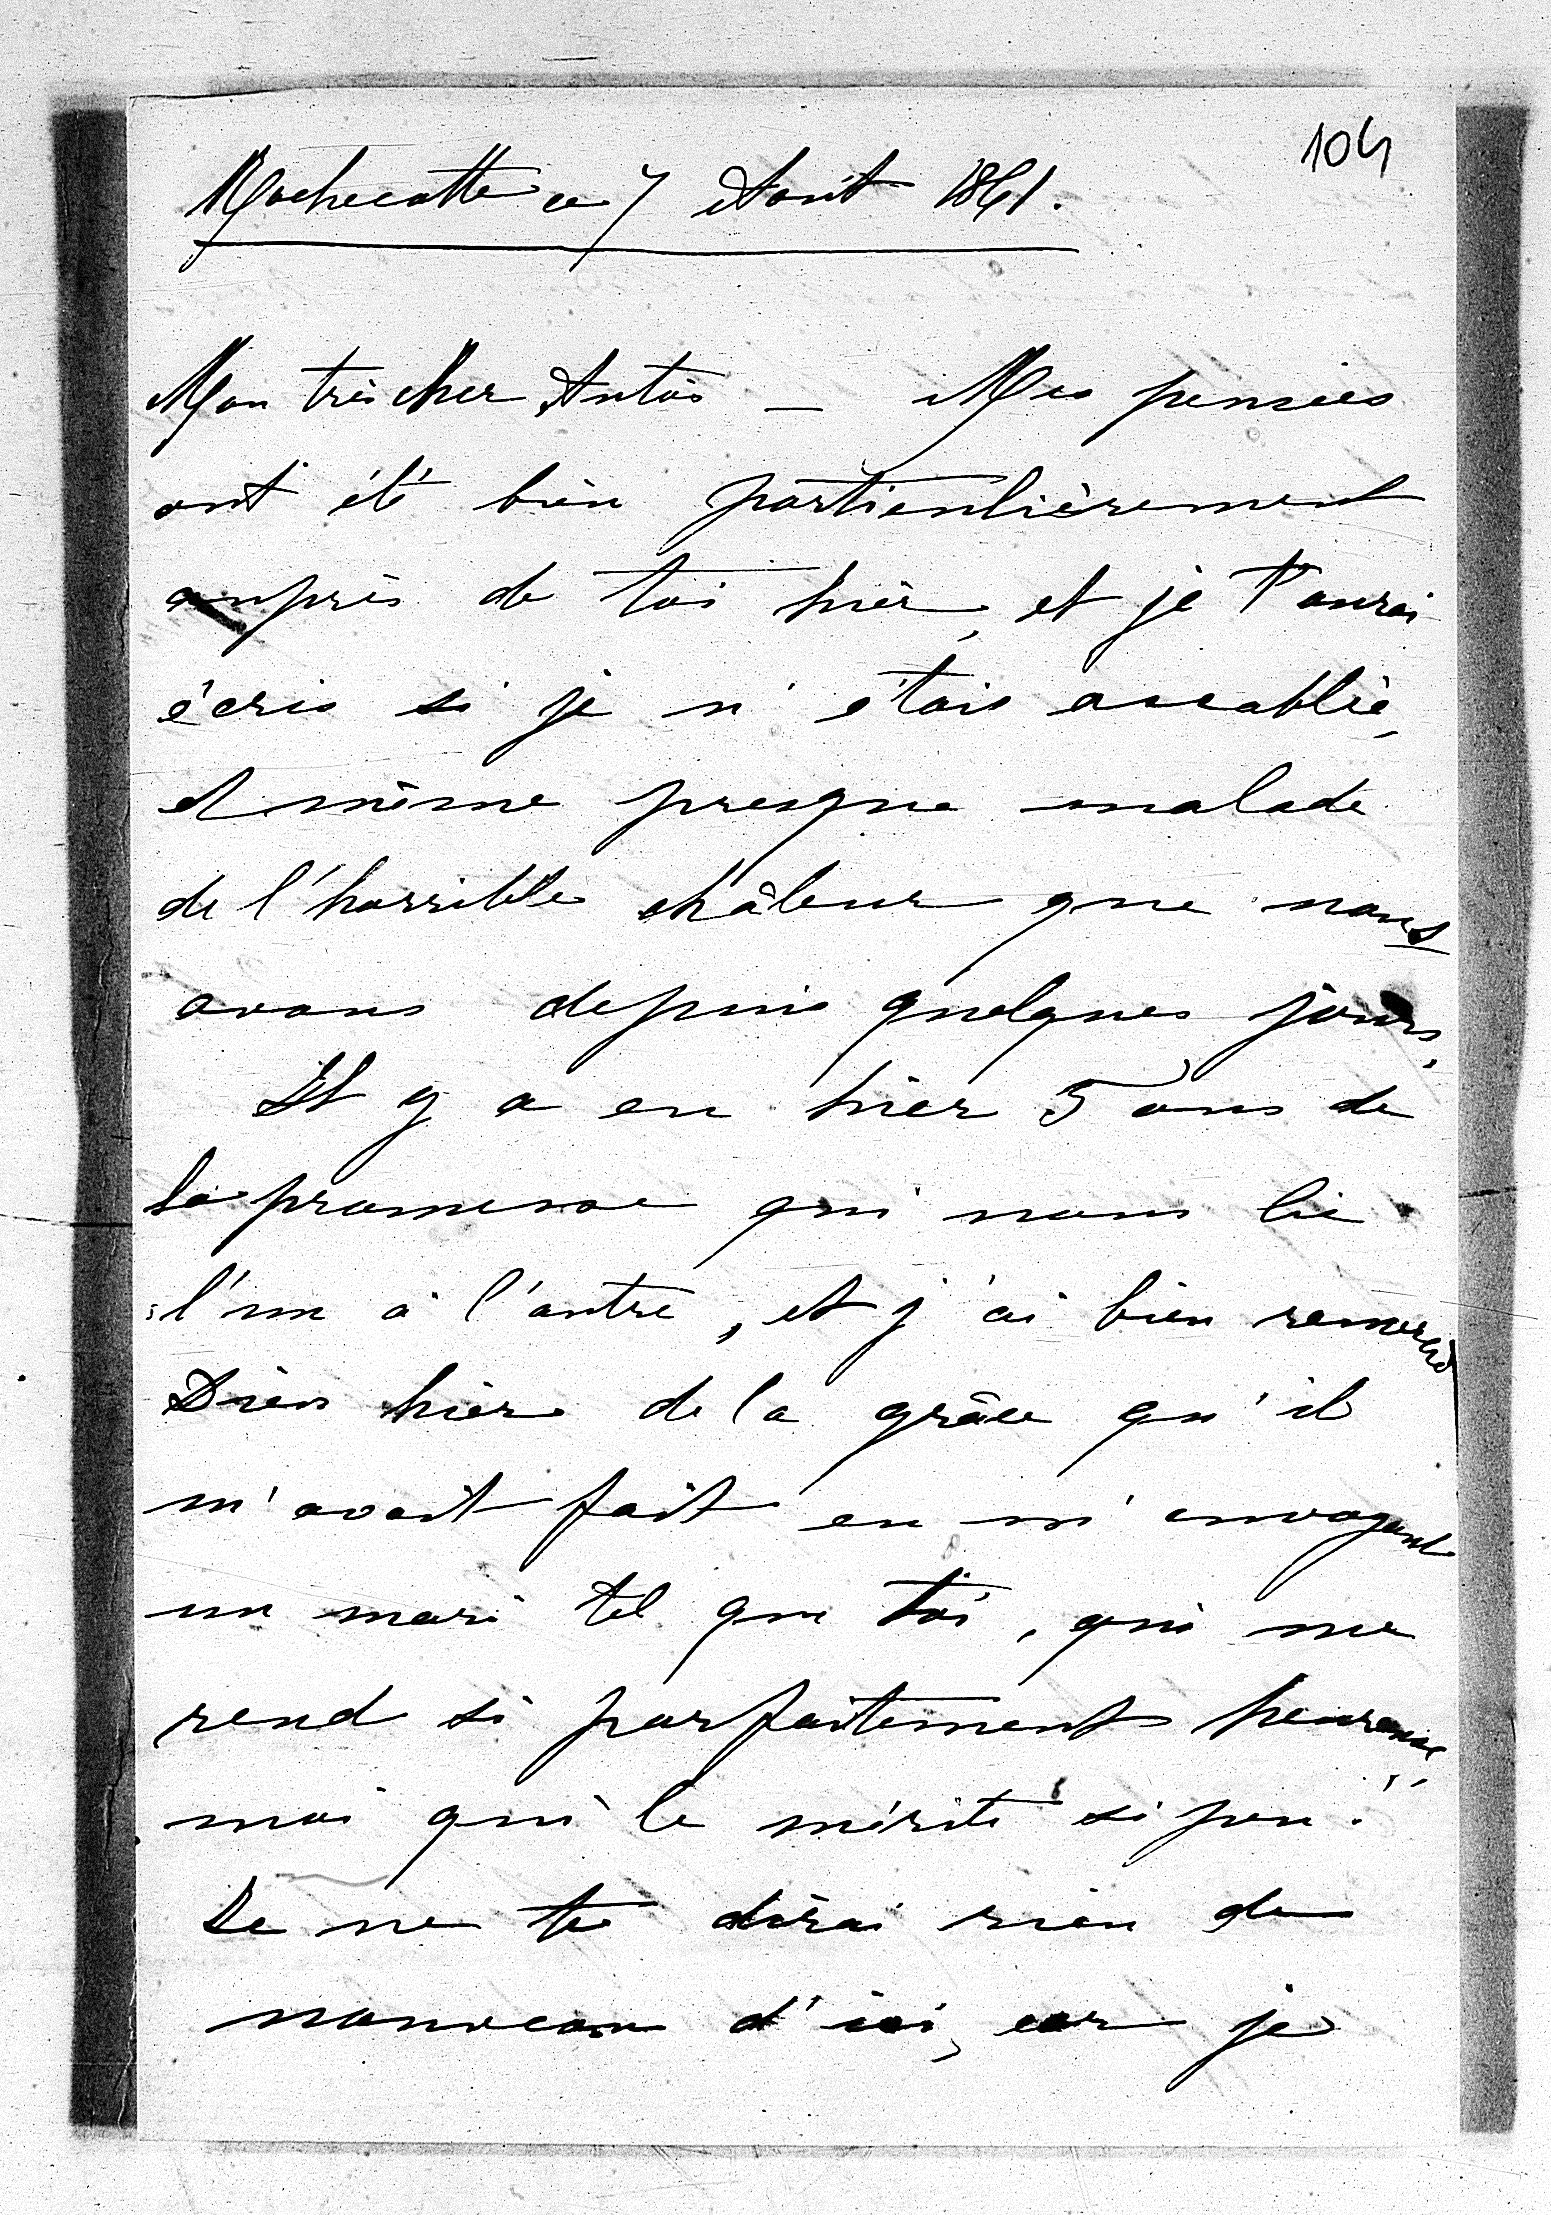 104
Rochecotte ce 7 Août 1861.
Mon très cher Antoś — Mes pensées
ont été bien particulièrement
auprès de toi hier, et je t'aurai
écris si je n'étais accablée,
et même presque malade
de l'horrible châleur que nous
avons depuis quelques jours.
Il y a eu hier 5 ans de
la promesse qui nous lie
l'un à l'autre, et j'ai bien remercié
Dieu hier de la grâce qu'il
m'avait fait en m'envoyant
un mari tel que toi, qui me
rend si parfaitement heureuse,
moi qui le mérite si peu!
Je ne te dirai rien de
nouveau d'ici, car je